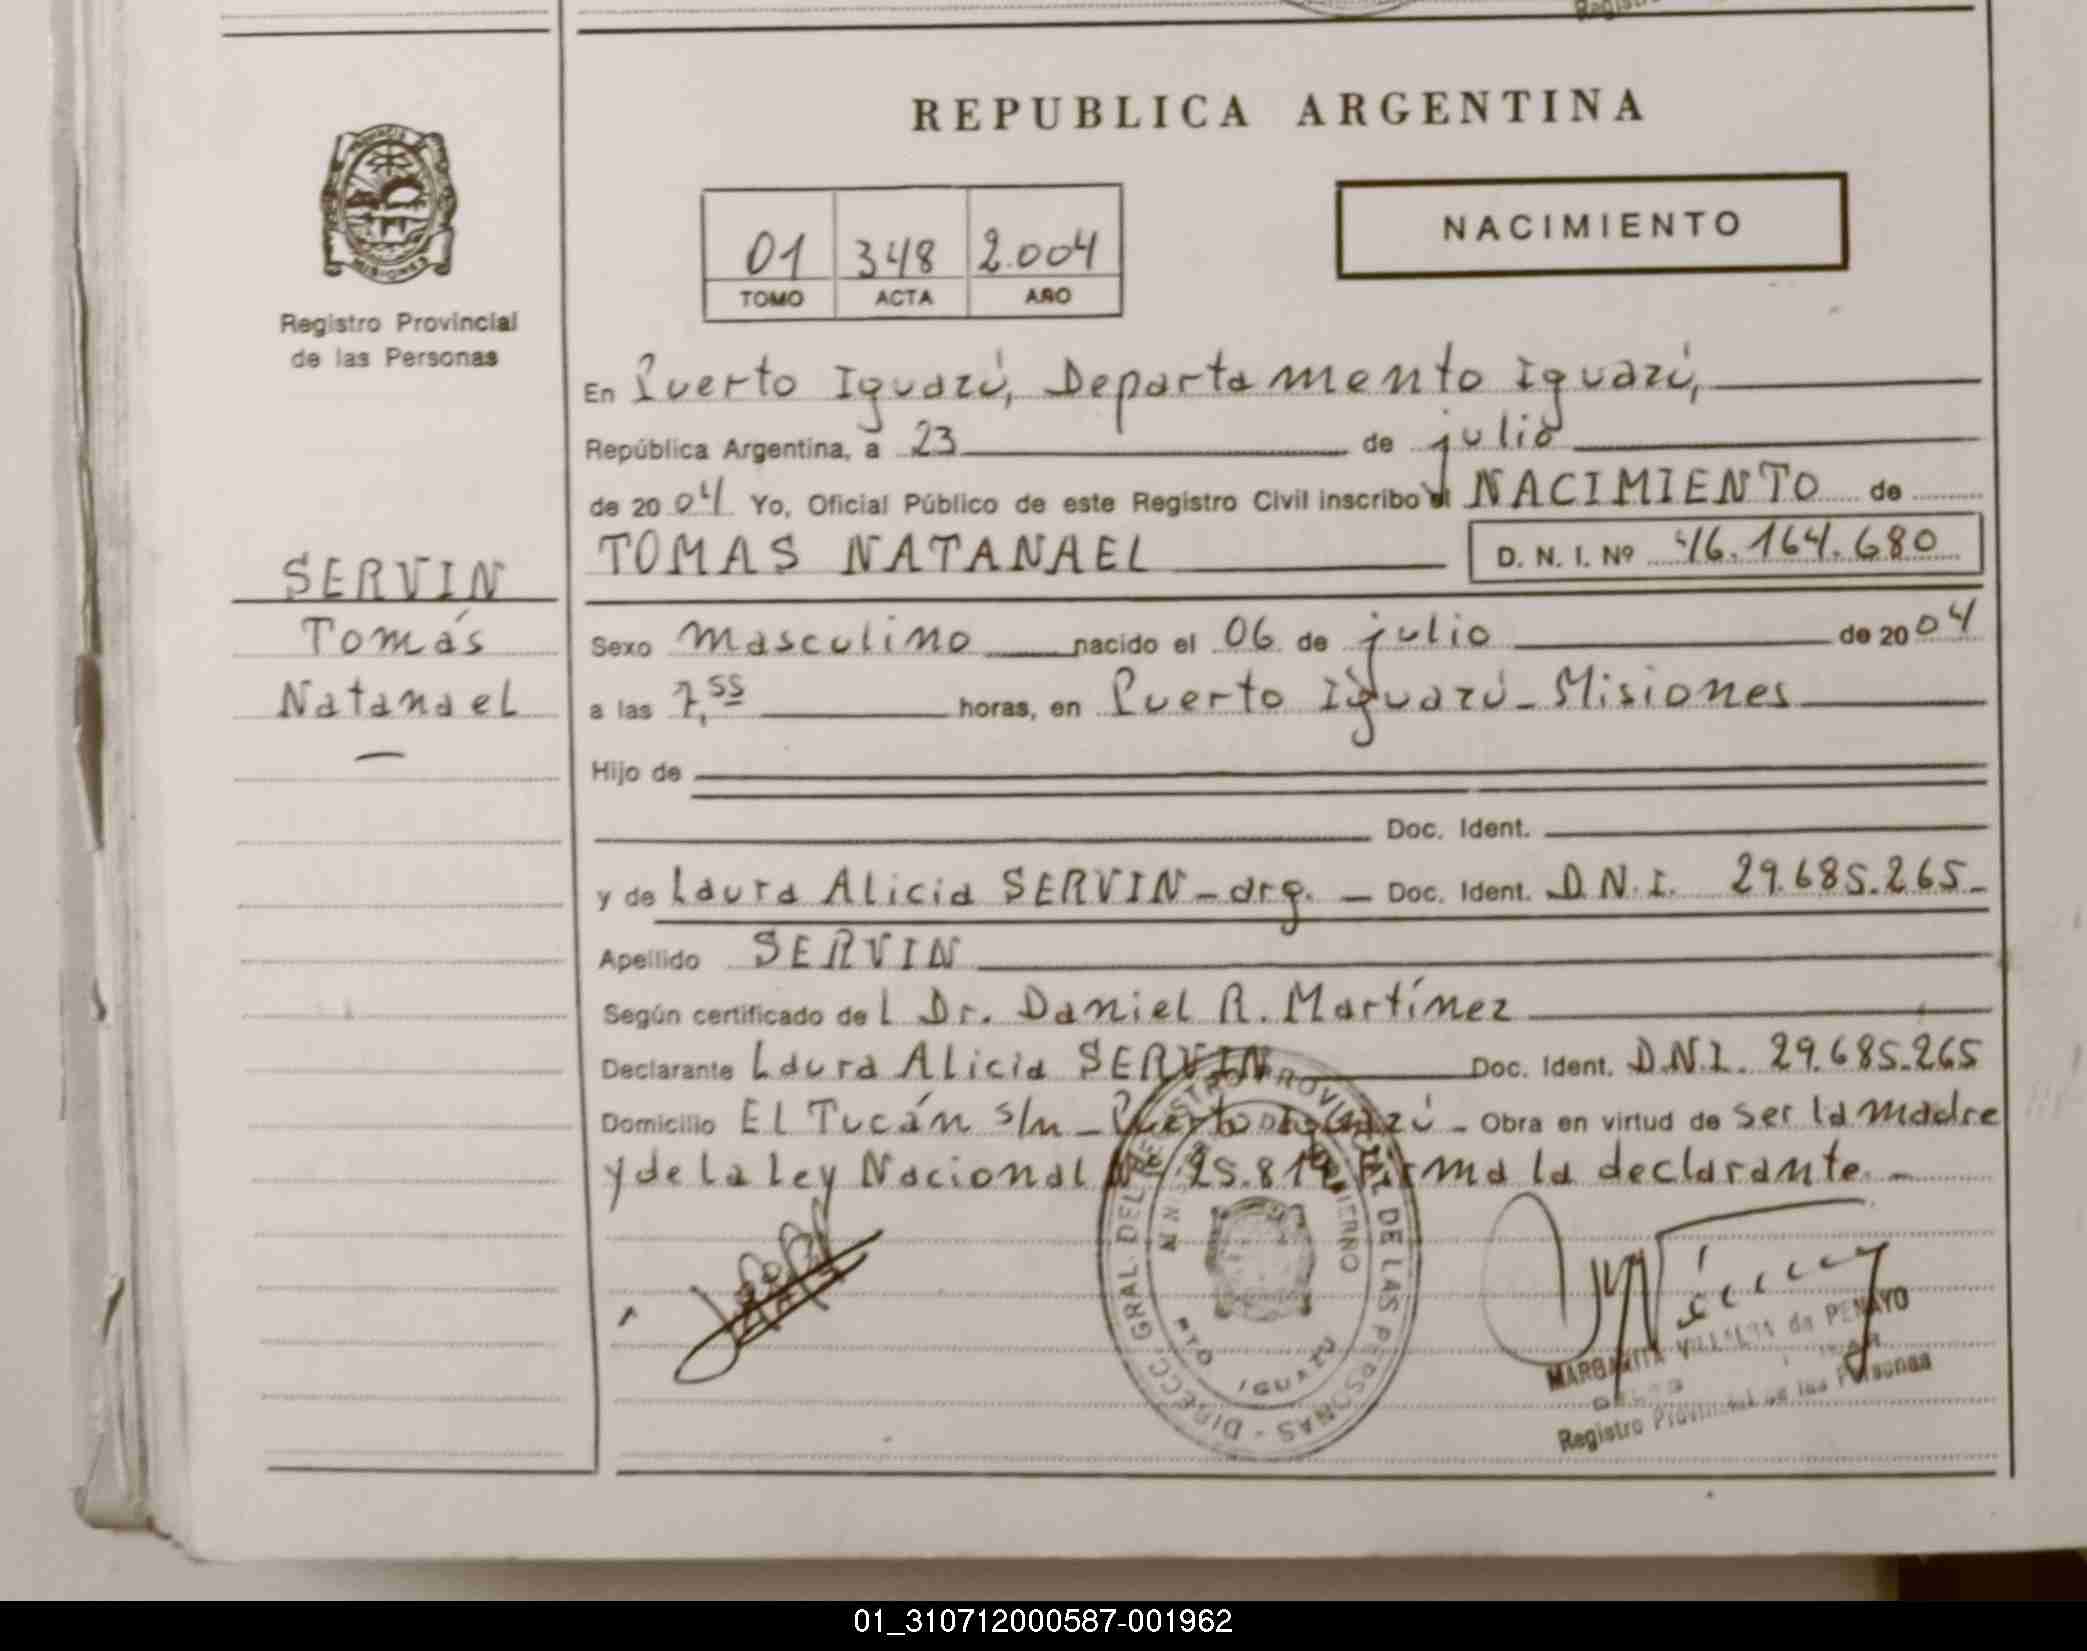 Registro
REPUBLICA ARGENTINA
PROVINCIA
MISIONES
Registro Provincial
de las Personas
01 348 2.004
TOMO ACTA AÑO
NACIMIENTO
En Puerto Iguazú, Departamento Iguazú,
República Argentina, a 23 de julio
de 2004 Yo, Oficial Público de este Registro Civil inscribo el NACIMIENTO de
SERVIN
Tomás
Natanael
TOMAS NATANAEL D. N. I. Nº 46.164.680
Sexo masculino nacido el 06 de julio de 2004
a las 7,55 horas, en Puerto Iguazú - Misiones
Hijo de
Doc. Ident.
y de Laura Alicia SERVIN - arg. - Doc. Ident. D.N.I. 29.685.265-
Apellido SERVIN
Según certificado del Dr. Daniel R. Martínez
Declarante Laura Alicia SERVIN Doc. Ident. D.N.I. 29.685.265
Domicilio El Tucán s/n - Puerto Iguazú - Obra en virtud de ser la madre
y de la ley Nacional Nº 25.819 Firma la declarante. -
DIRECC. GRAL. DEL REGISTRO PROVINCIAL DE LAS PERSONAS -
GOBIERNO
PTO IGUAZU
MARGARITA VILLALBA de PENAYO
Registro Provincial de las Personas
01_310712000587-001962